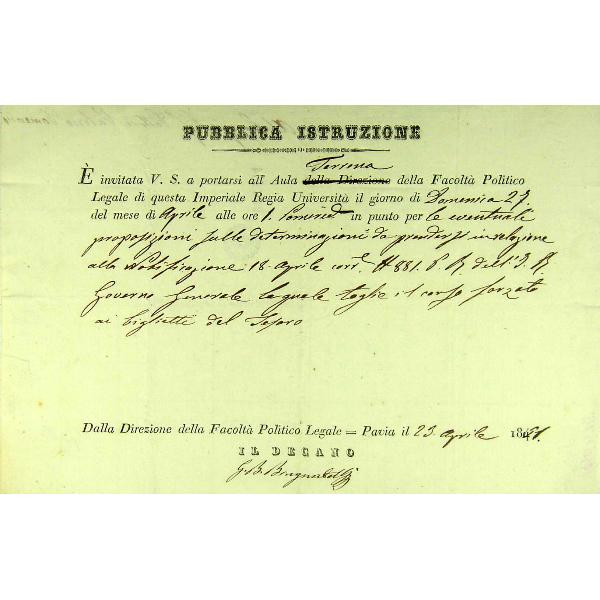 PUBBLICA ISTRUZIONE
Terrena
È invitata V. S. a portarsi all' Aula della Direzione della Facoltà Politico
Legale di questa Imperiale Regia Università il giorno di Domenica 27
del mese di Aprile alle ore 1. Pomerid. in punto per le eventuali
proposizioni sulle determinazioni da prendersi in relazione
alla Notificazione 18 Aprile corr.e N 881. P. R. dell' I. R.
Governo Generale la quale toglie il corso forzato
ai biglietti del Tesoro
Dalla Direzione della Facoltà Politico Legale = Pavia il 23. Aprile 1851.
IL DECANO
G. B.